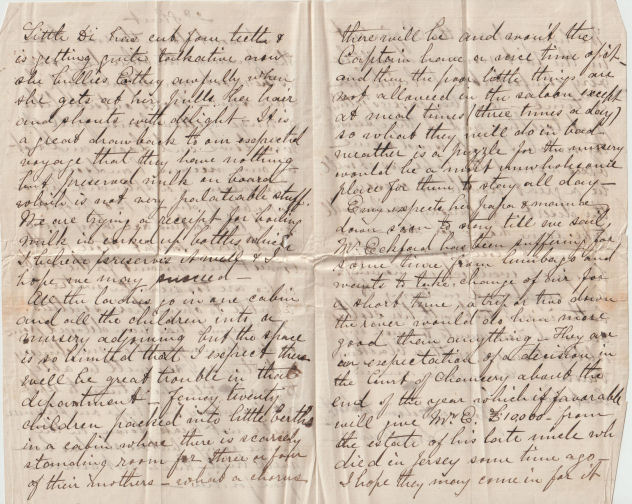 Little Di has cut four teeth &
is getting quite talkative now
she bullies Cathy awfully when
she gets at her, pulls her hair
and shouts with delight - It is
a great drawback to our expected
voyage that they have nothing
but preserved milk on board
which is not very palateable stuff.
We are trying a receipt for boiling
milk in corked up bottles which
I believe preserves it well & I
hope we may succeed -
All the ladies go in one cabin
and all the children into a
nursery adjoining but the space
is so limited that I expect there
will be great trouble in that
department - fancy twenty
children packed into little berths
in a cabin where there is scarcely
standing room for three or four
of their mothers - what a chorus
there will be and won't the
Captain have a nice time of it -
and then the poor little things are
not allowed in the saloon except
at meal times (three times a day)
so what they will do in bad
weather is a puzzle for the nursery
would be a most unwholesome
place for them to stay all day -
Emy expects her papa & mamma
down soon to stay till we sail
Mr Eckford has been suffering for
some time from lumbago and
wants to take change of air for
a short time a trip or two down
the river would do him more
good than anything - They are
in expectation of a decision in
the Court of Chancery about the
end of the year which if favorable
will give Mr E. £10,000 - from
the estate of his late uncle who
died in Jersey some time ago -
I hope they may come in for it